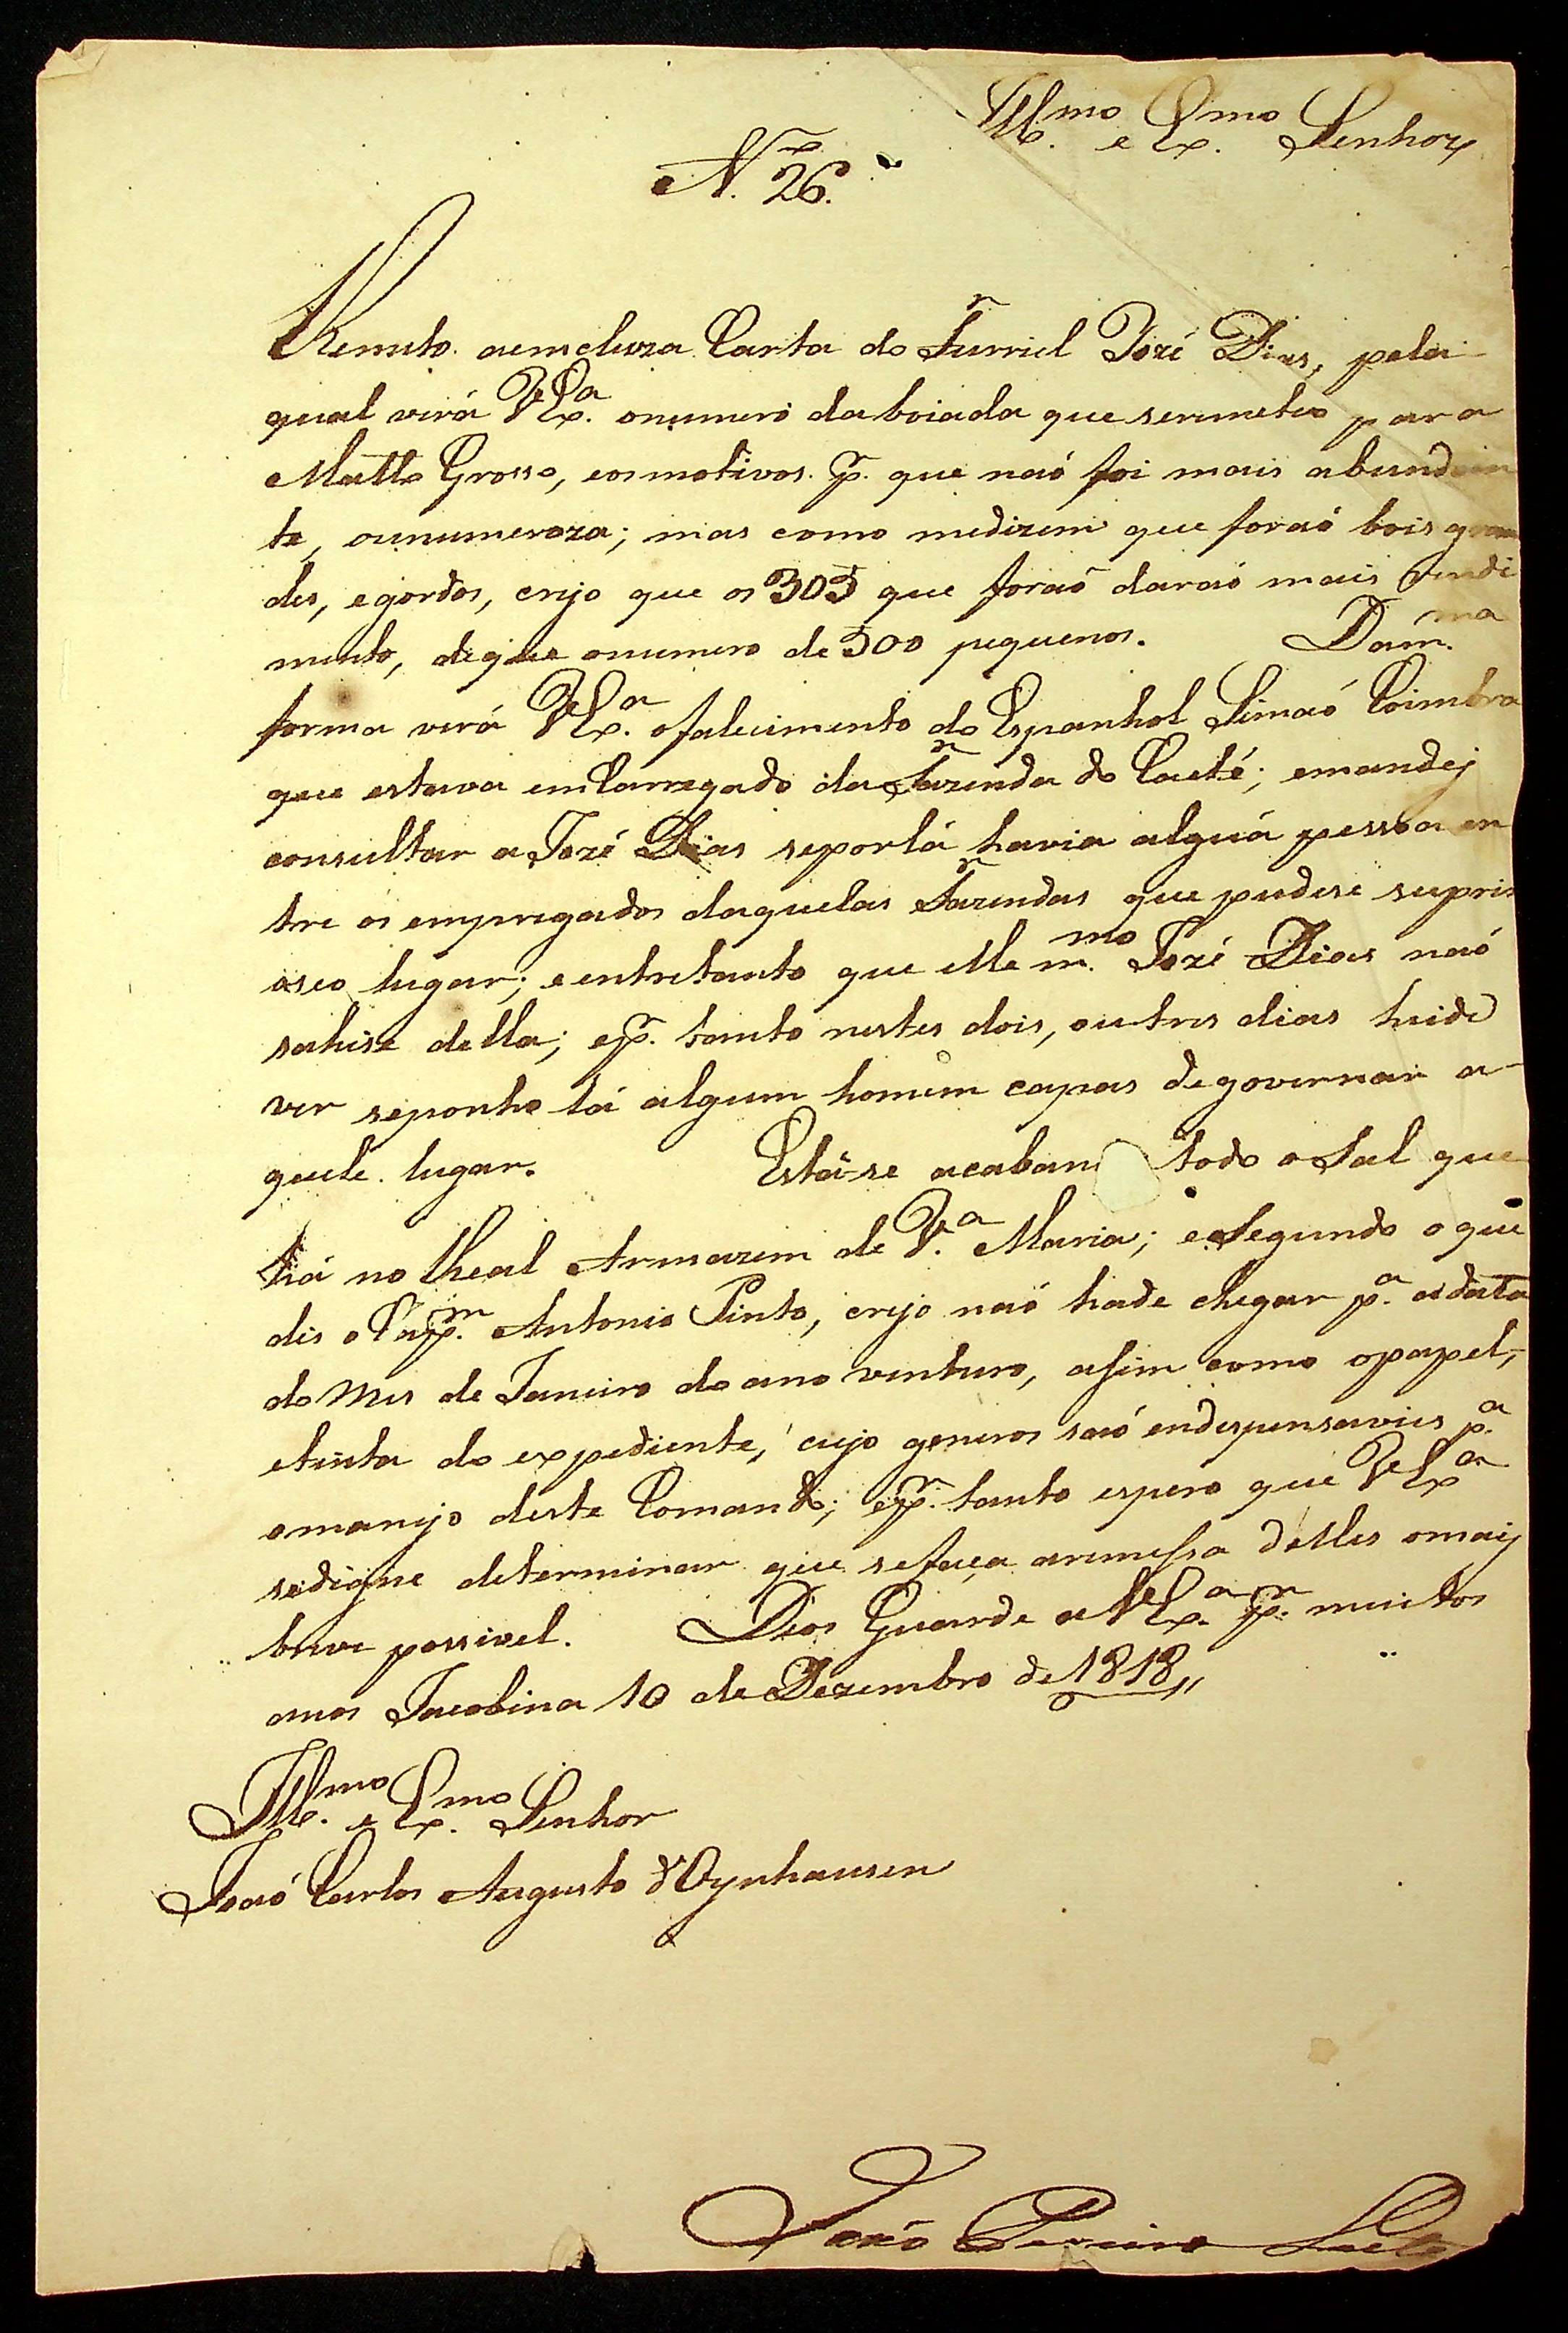 Ill.mo e Ex.mo Senhor
N. 26.
Remeto aemcluza Carta do Furriel Jozé Dias, pela
qual verá V.Ex.a onumero da boiada que seremeteo para
Matto Grosso, eosmotivos p.r que naó foi mais abundan
te, ounumeroza; mas como medizem que foraó bois gran
des, egordos, crejo que os 303 que foraó daraó mais rendi
mento, deque onumero de 500 pequenos. Dam.ma
forma verá V.Ex.a ofalecimento do Espanhol Simaó Coimbra
que estava emCarregado da Fazenda do Caeté; emandej
consultar a Jozé Dias seporlá havia alguá pessoa en
tre os empregados daquelas Fazendas que pudese suprir
oseo lugar; eentretanto que elle m.mo Jozé Dias naó
sahise della; ep.r tanto nestes dois, outres dias heide
ver seponho lá algum homem capas degovernar a
quele lugar. Está-se acaban todo o Sal que
há no Real Armazem de V.a Maria; eSegundo o que
dis o Cap.m Antonio Pinto, crejo naó hade chegar p.a adata
do Mes de Janeiro do ano venturo, asim como opapel,
etinta do expediente, cujo generos saó endespensavies p.a
omanejo deste Comando; ep.r tanto espero que V.Ex.a
sedigne determinar que sefaça aremessa delles omais
breve possivel. Deos Guarde a V.Ex.a p.r muitos
anos Jacobina 10 de Dezembro de 1818,,
Ill.mo e Ex.mo Senhor
Joaó Carlos Augusto d'Oynhausen
Joaó Pereira Leite